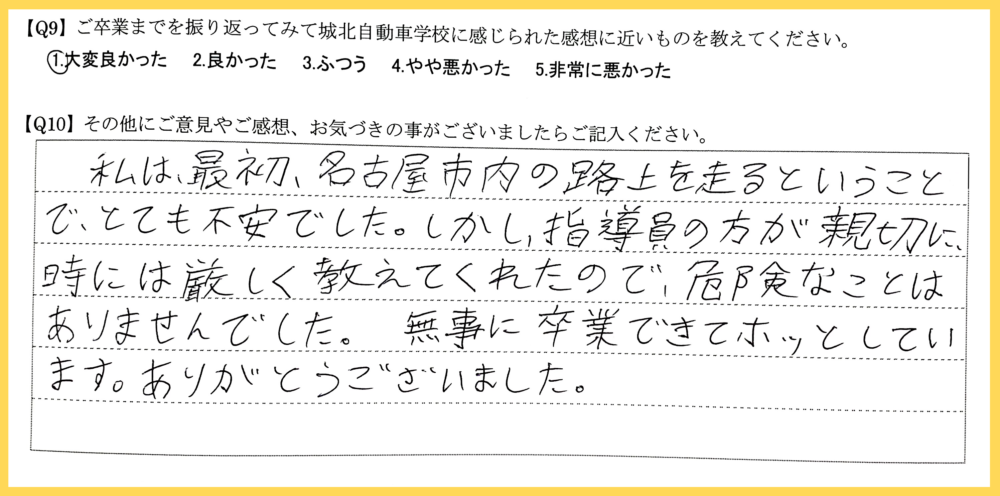 【Q9】ご卒業までを振り返ってみて城北自動車学校に感じられた感想に近いものを教えてください。
1.大変良かった 2.良かった 3.ふつう 4.やや悪かった 5.非常に悪かった
【Q10】その他にご意見やご感想、お気づきの事がございましたらご記入ください。
私は、最初、名古屋市内の路上を走るということ
で、とても不安でした。しかし、指導員の方が親切に、
時には厳しく教えてくれたので、危険なことは
ありませんでした。 無事に卒業できてホッとしてい
ます。ありがとうございました。